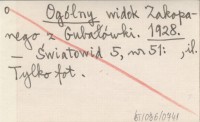 Ogólny widok Zakopa-
nego z Gubałówki. 1928.
— Światowid 5, nr 51: , il.
Tylko fot.
61086/0741